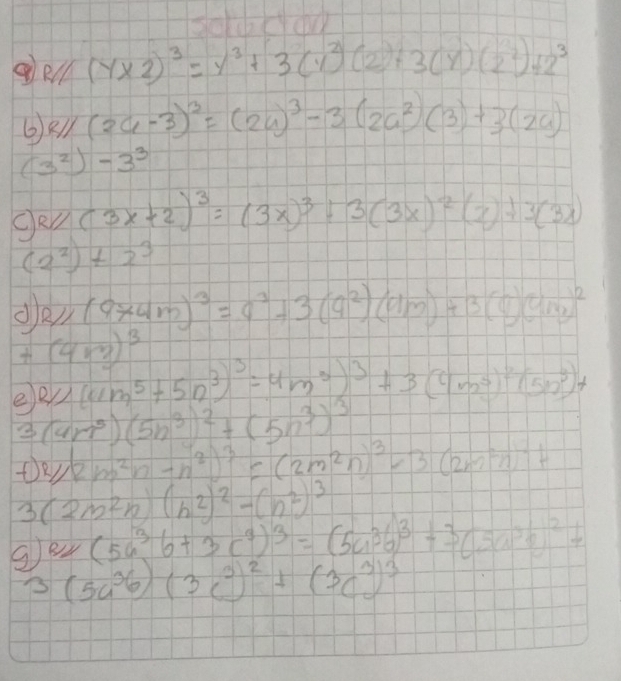 solución
a)R// (Y×2)³ = Y³ + 3(Y²)(2)+3(Y)(2²)+2³
b)R// (2a-3)³ = (2a)³ - 3(2a²)(3)+3(2a)
(3²) - 3³
c)R// (3x+2)³ = (3x)³ + 3(3x)²(2)+3(3x)
(2²) + 2³
d)R// (9×4m)³ = 9³ + 3(9²)(4m)+3(9)(4m)²
+ (4m)³
e)R// (4m⁵+5n³)³ = 4m⁵)³ + 3(4m⁵)²(5n³)+
3(4m⁵)(5n³)²+(5n³)³
f)R// (2m²n - n²)³ = (2m²n)³ - 3(2m²n)² +
3(2m²n)(n²)²-(n²)³
g)R// (5a³b+3c³)³ = (5a³b)³ + 3(5a³b)² +
3(5a³b)(3c³)² + (3c³)³